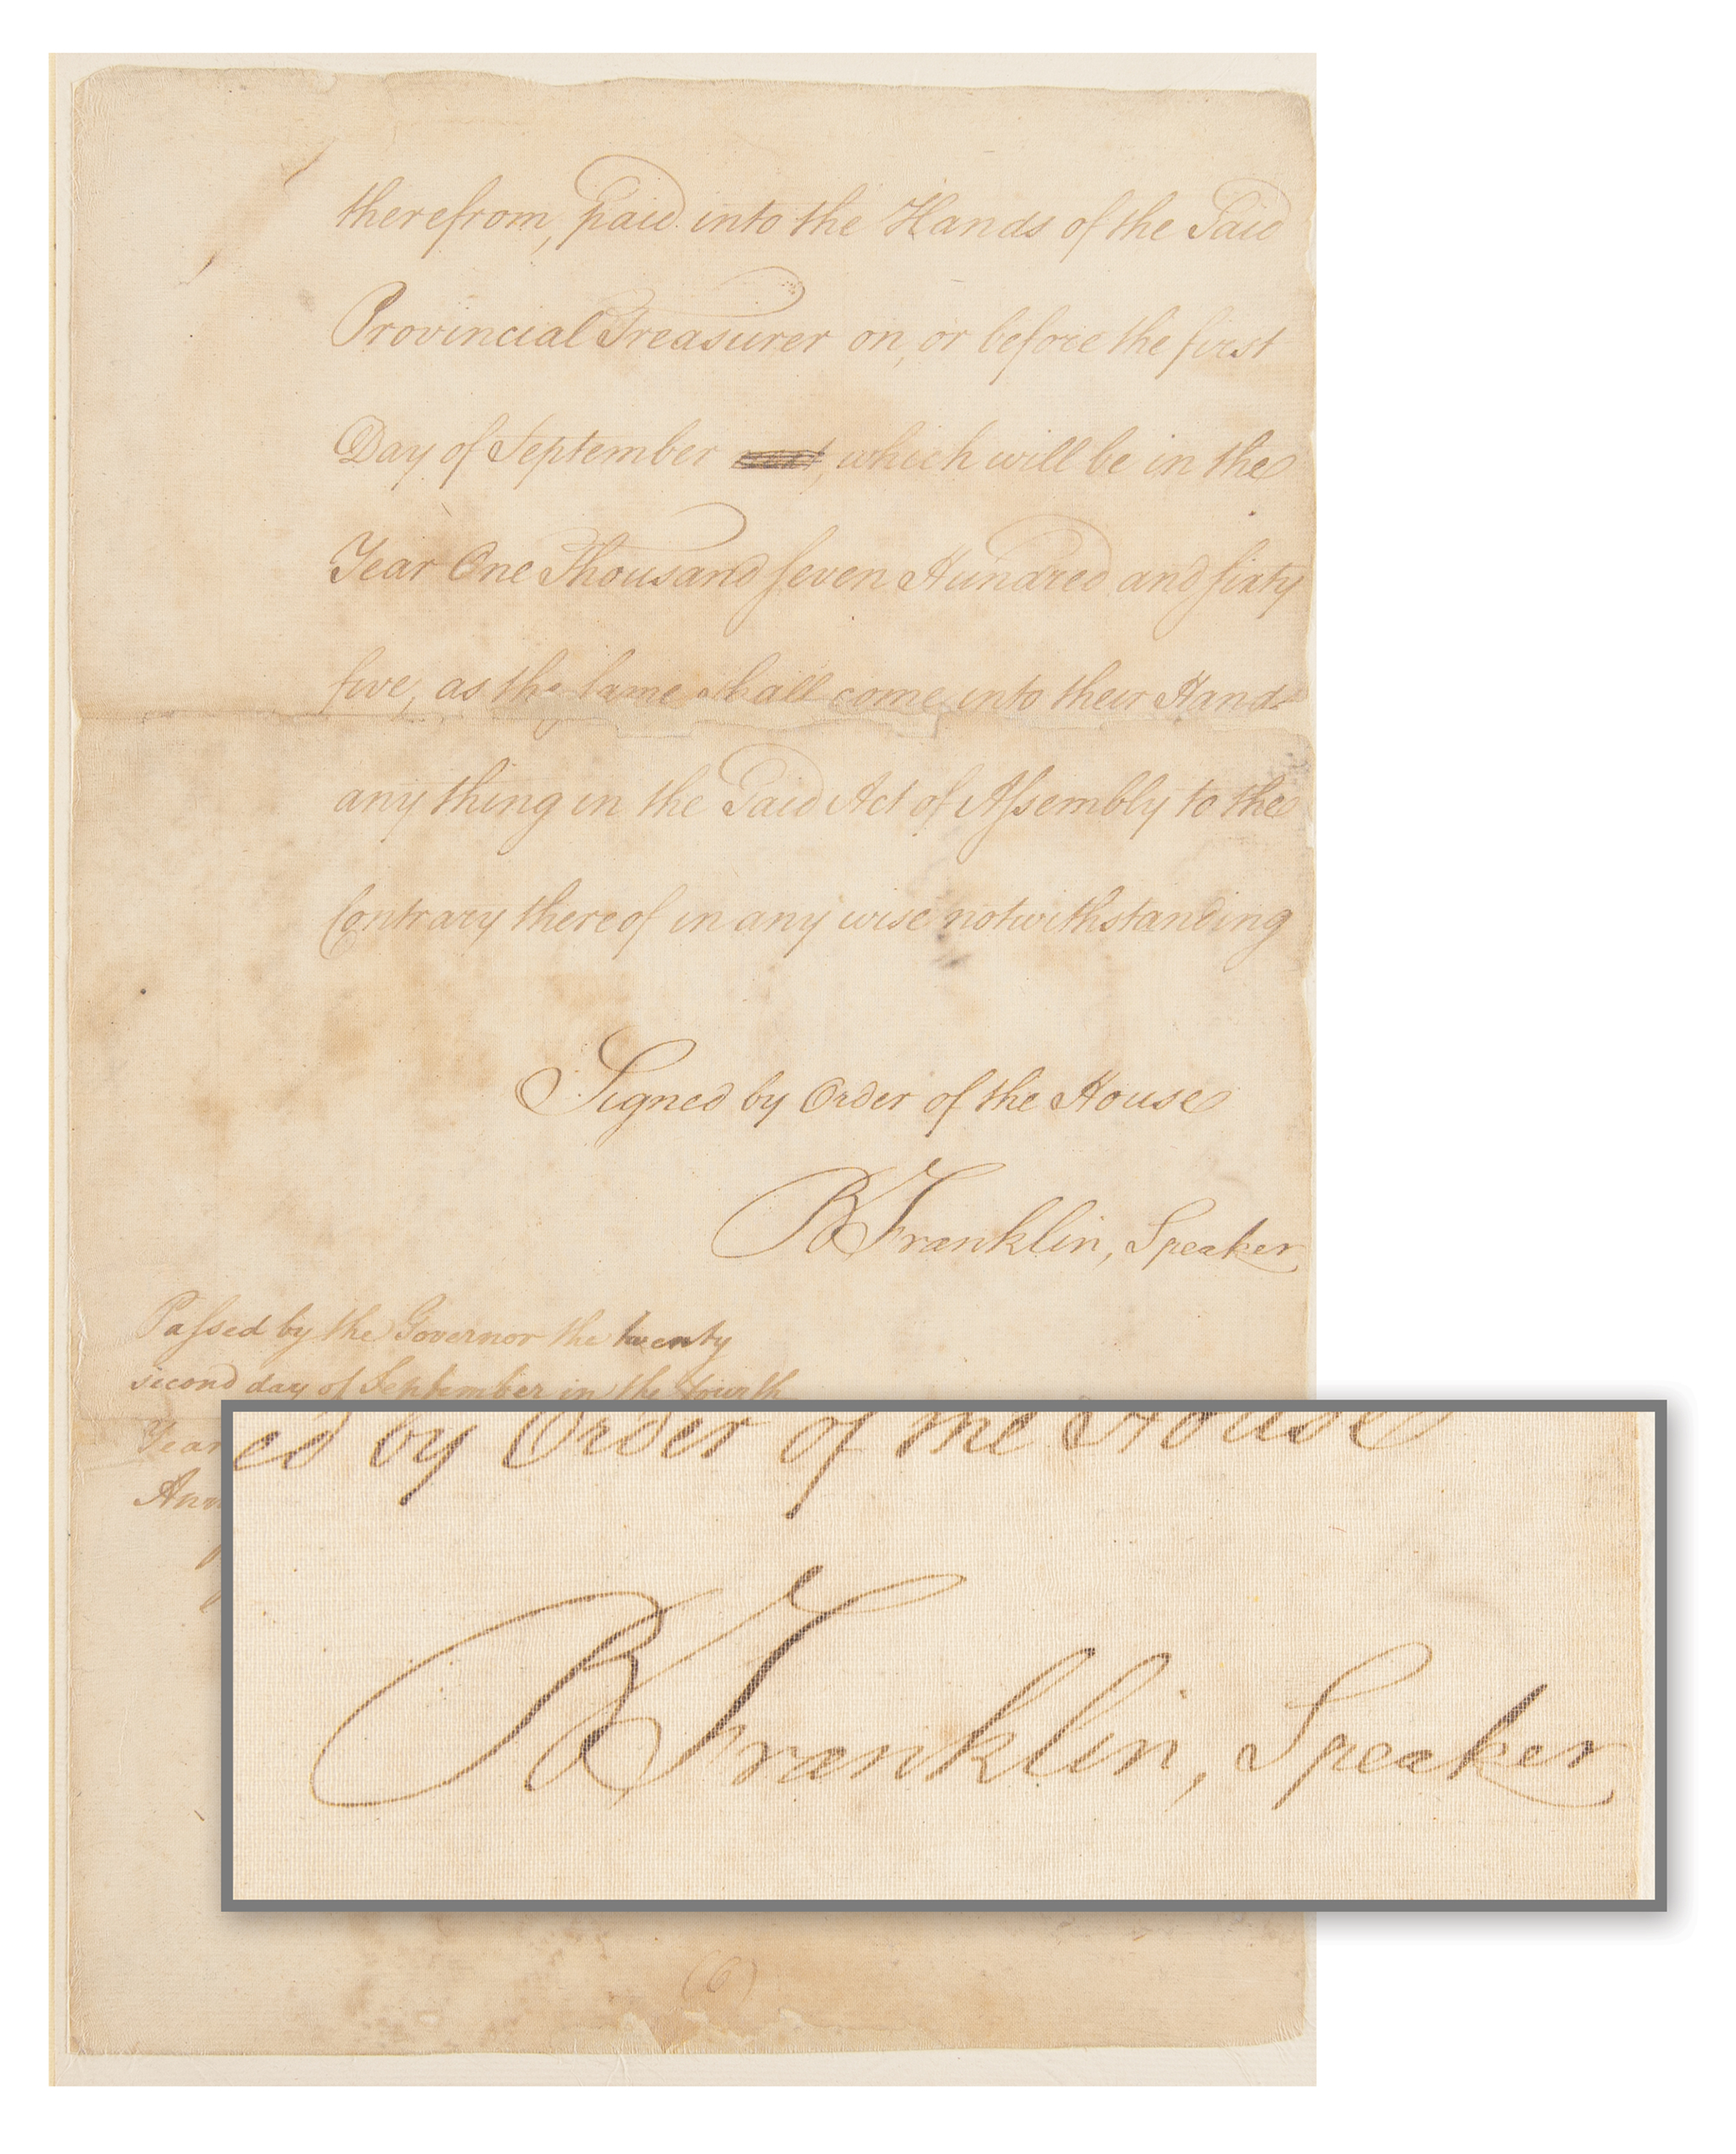 therefrom, paid into the Hands of the Said
Provincial Treasurer on, or before the first
Day of September , which will be in the
Year One Thousand seven Hundred and sixty
five, as the same shall come into their Hands
any thing in the Said Act of Assembly to the
Contrary thereof in any wise notwithstanding
Signed by Order of the House
B Franklin, Speaker
Passed by the Governor the twenty
second day of September in the fourth
Year
ed by Order of the House
B Franklin, Speaker
(6)